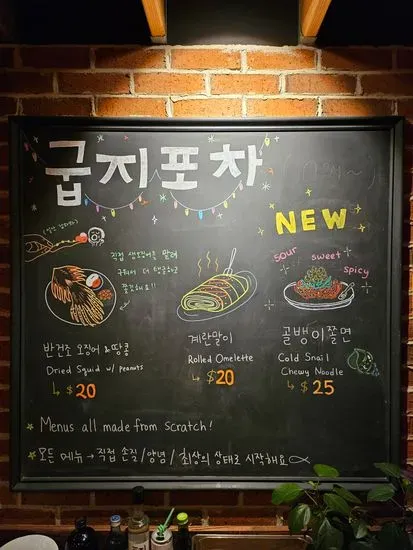 굽지포차
NEW
직접 생오징어를 말려
구워서 더 탱글하고
쫄깃해요!!
sour sweet spicy
반건조 오징어 & 땅콩
Dried Squid w/ peanuts
↳ $20
계란말이
Rolled Omelette
↳ $20
골뱅이쫄면
Cold Snail
Chewy Noodle
↳ $25
Menus all made from scratch!
모든 메뉴 → 직접 손질/양념/최상의 상태로 시작해요